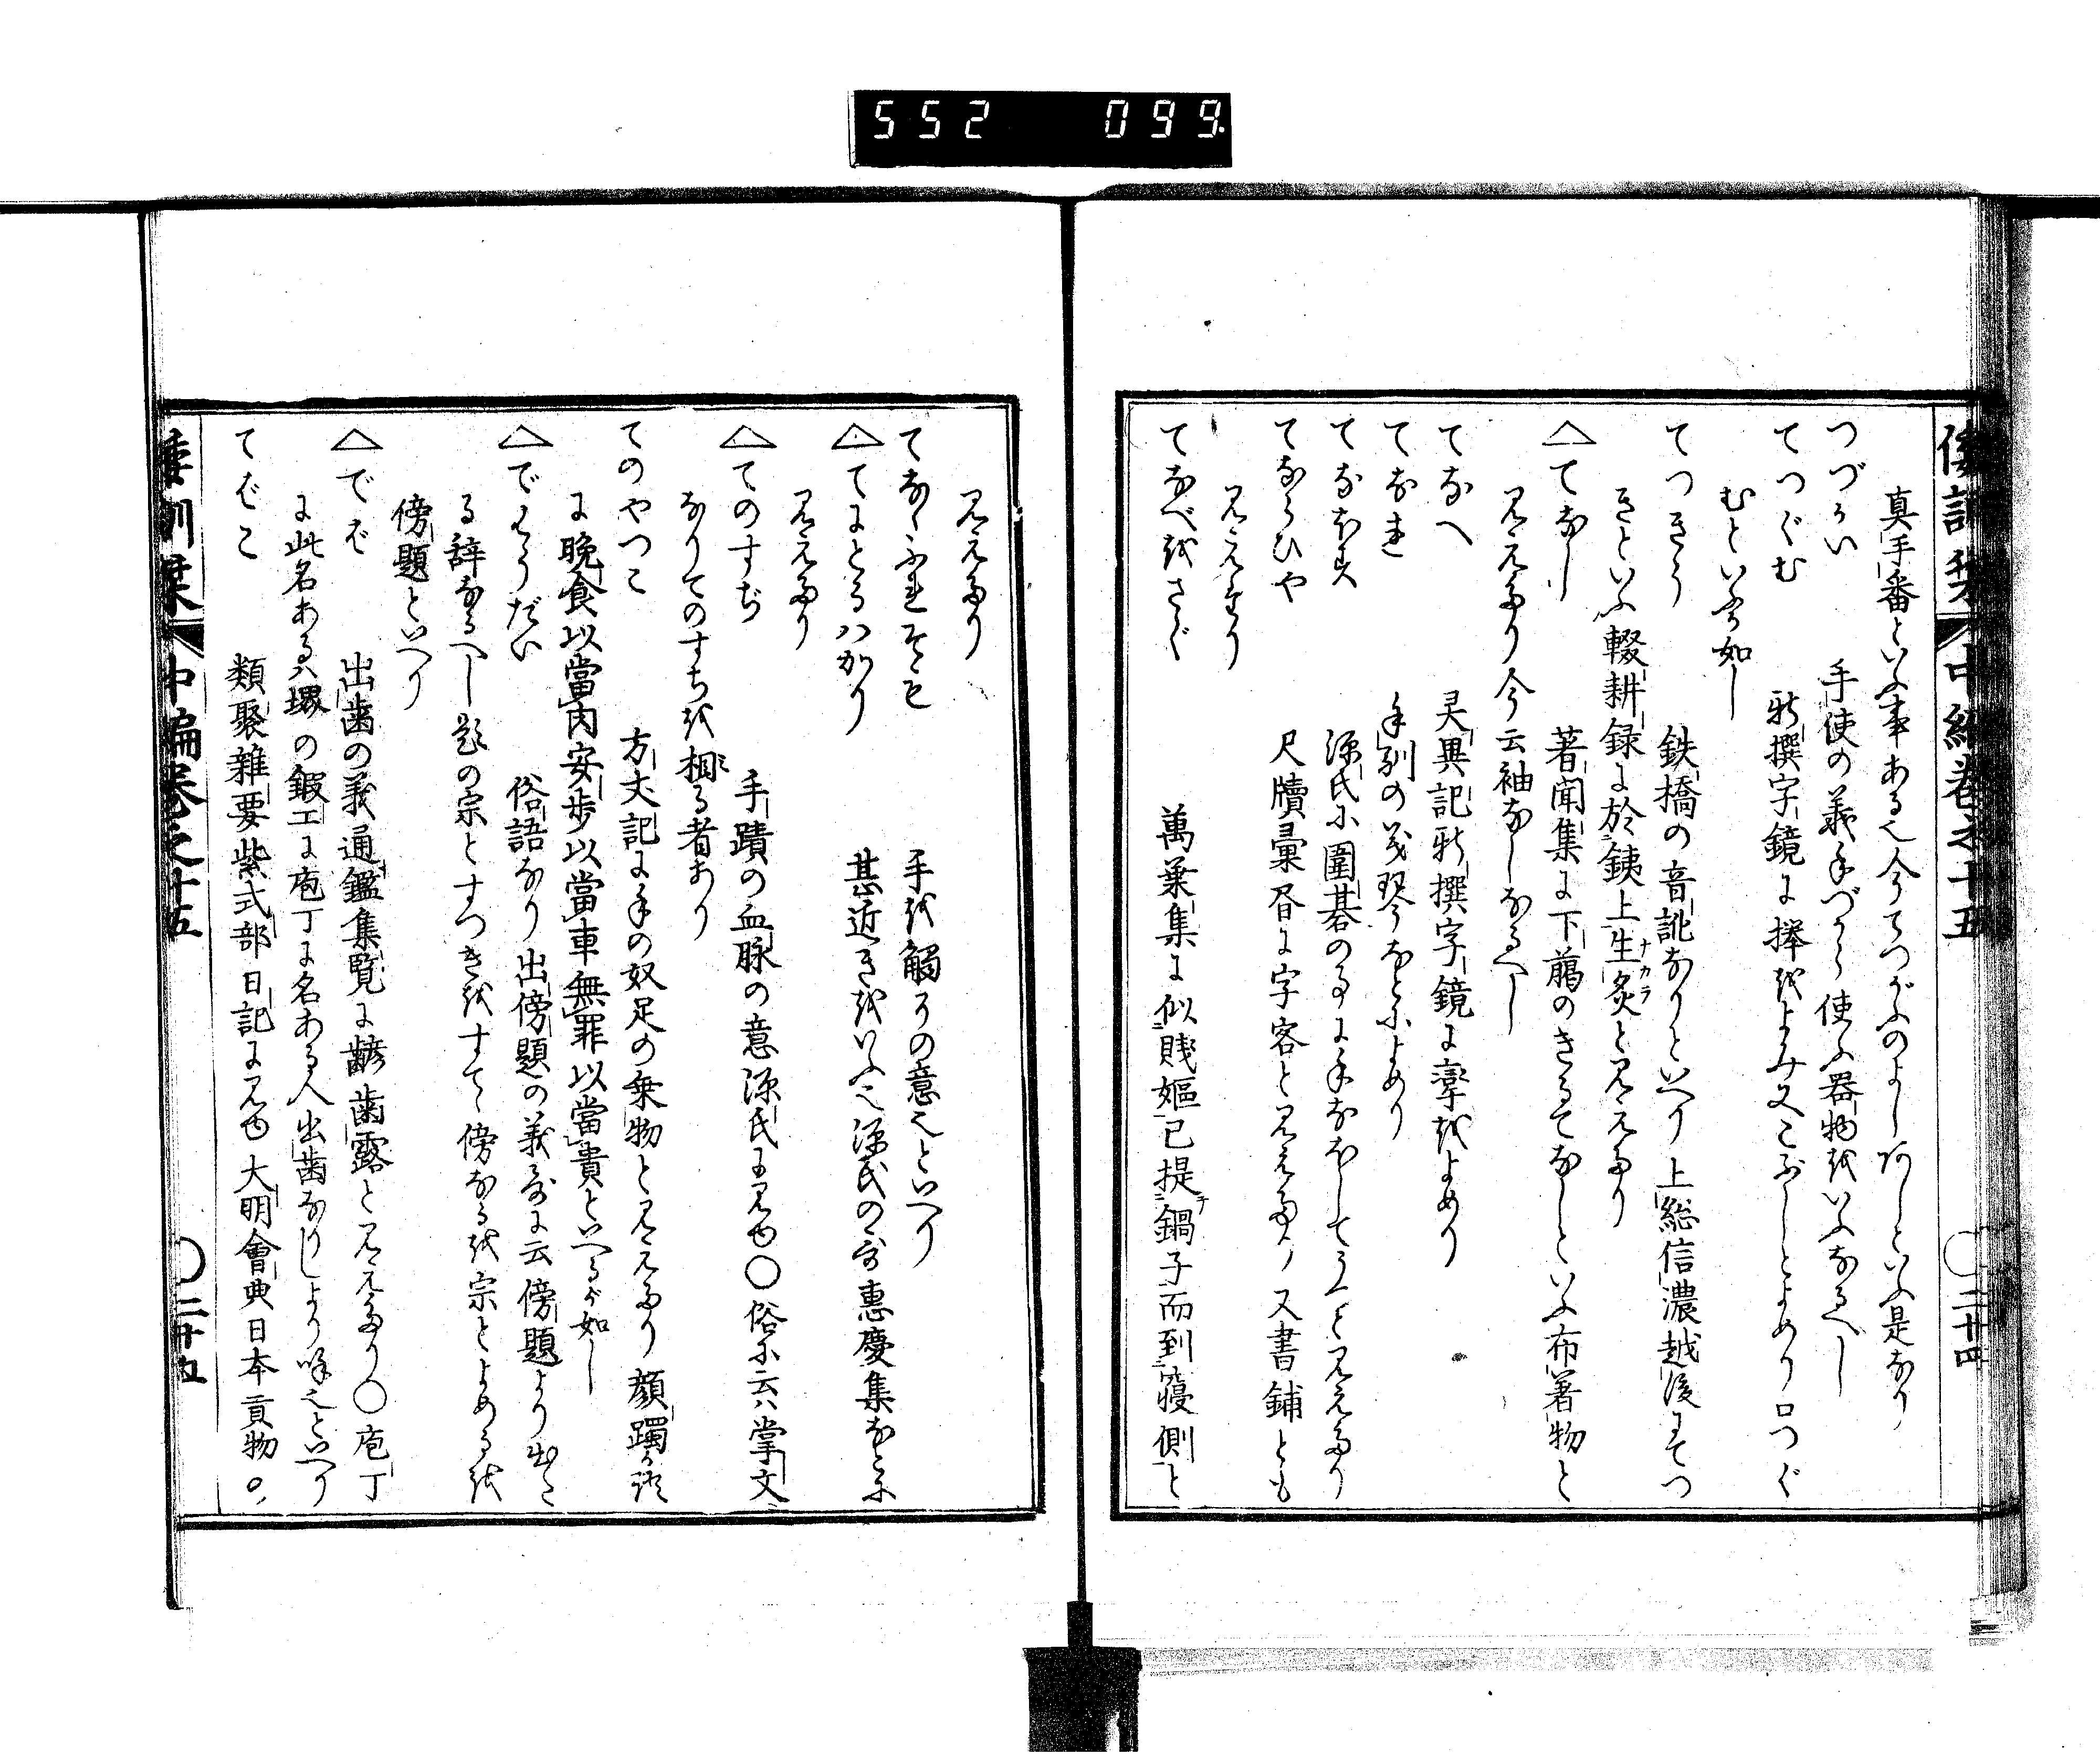 552 099.
倭訓栞 中編巻之十五 〇二十四
真手番といふ事ある也今てつがふのよしあしといふ是なり
つづかい 手使の義手づから使ふ器物をいふなるへし
てつぐむ 新撰字鏡に拳をよみ又こぶしとよめり口つぐ
むといふか如し
てつきう 鉄橋の音訛なりといへり上総信濃越後にてつ
きといふ輟耕録に於銕上生炙と見えたり
ナカラ
△てなし 著聞集に下﨟のきるてなしといふ布著物と
見えたり今云袖なしなるへし
てなへ 灵異記新撰字鏡に攣をよめり
てなれ 手馴の義琴なとによめり
てなほし 源氏に圍碁の事に手なほしてうへと見えたり
てならひや 尺牘彙昏に字客と見えたり又書鋪とも
見えたり
てなべをさぐ 萬葉集に似賤嫗已提鍋子而到寢側と
見えたり
てなゝふれそも 手を觸るの意也といへり
△てにとるハかり 甚近きをいふ也源氏の哥惠慶集なとに
見えたり
△てのすぢ 手蹟の血脉の意源氏に見ゆ〇俗に云ハ掌文
なりてのすちを相る者あり
ミ
てのやつこ 方丈記に手の奴足の乗物と見えたり顔躅か語
に晩食以當肉安歩以當車無罪以當貴といへるか如し
△でばうだい 俗語なり出傍題の義哥に云傍題より出た
る辞なるへし題の宗とすつきをすて傍なるを宗とよめるを
傍題といへり
△でば 出歯の義通鑑集覧に齴歯露と見えたり〇庖丁
に此名あるハ堺の鍜工に庖丁に名ある人出歯なりしより呼也といへり
てばこ 類聚雜要紫式部日記に見ゆ大明會典日本貢物〇
倭訓栞 中編巻之十五 〇二十五